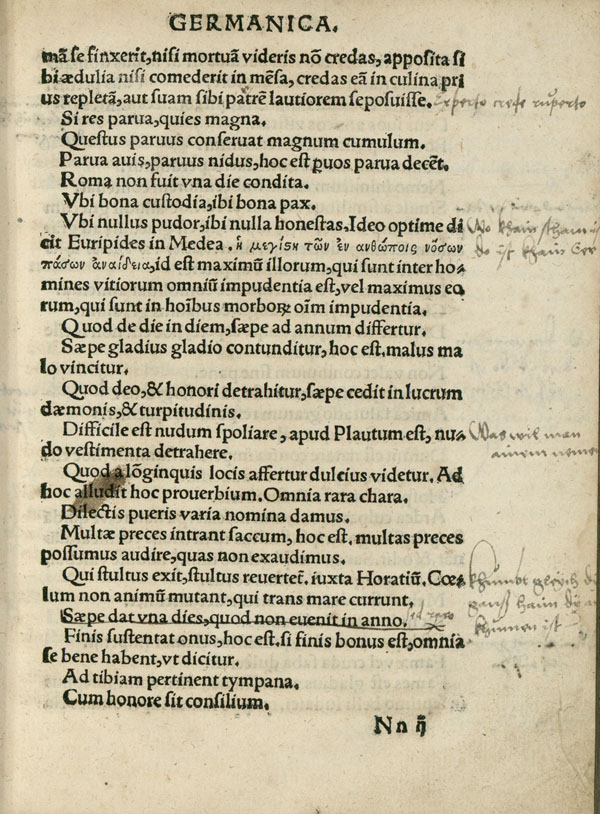 GERMANICA.
mā se finxerit, nisi mortuā videris nō credas, apposita si
bi ædulia nisi comederit in mēsa, credas eā in culina pri
us repletā, aut suam sibi patrē lautiorem seposuisse. Experto crede ruperto
Si res parua, quies magna.
Questus paruus conseruat magnum cumulum.
Parua auis, paruus nidus, hoc est puos parua decēt.
Roma non fuit vna die condita.
Vbi bona custodia, ibi bona pax.
Vbi nullus pudor, ibi nulla honestas, Ideo optime di Wo khain scham
cit Euripides in Medea. ἡ μεγίςη τῶν ἐν ανθώποις νόσων do ist khain Eer
πάσων ἀναίδεια, id est maximū illorum, qui sunt inter ho-
mines vitiorum omniū impudentia est, vel maximus eo
rum, qui sunt in hoībus morboꝝ oīm impudentia.
Quod de die in diem, sæpe ad annum differtur.
Sæpe gladius gladio contunditur, hoc est. malus ma
lo vincitur.
Quod deo, & honori detrahitur, sæpe cedit in lucrum
dæmonis, & turpitudinis.
Difficile est nudum spoliare, apud Plautum est, nu- Was wil man
do vestimenta detrahere. ainem nemen
Quod a lōginquis locis affertur dulcius videtur. Ad
hoc alludit hoc prouerbium. Omnia rara chara.
Dilectis pueris varia nomina damus.
Multæ preces intrant saccum, hoc est. multas preces
possumus audire, quas non exaudimus.
Qui stultus exit, stultus reuertet̄. iuxta Horatiū. Cœ- khumbt gleych
lum non animū mutant, qui trans mare currunt. ganß haim
Sæpe dat vna dies, quod non euenit in anno. khumen ist
Finis sustentat onus, hoc est. si finis bonus est, omnia
se bene habent, vt dicitur.
Ad tibiam pertinent tympana.
Cum honore sit consilium.
Nn ij